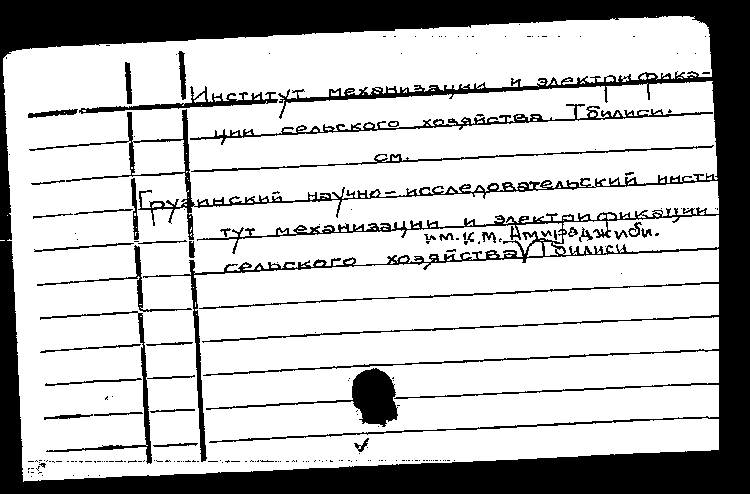 Институт механизации и электрифика-
ции сельского хозяйства. Тбилиси.
см.
Грузинский научно-исследовательский инсти
тут механизации и электрификации
им. К.М. Амираджиби.
сельского хозяйства Тбилиси